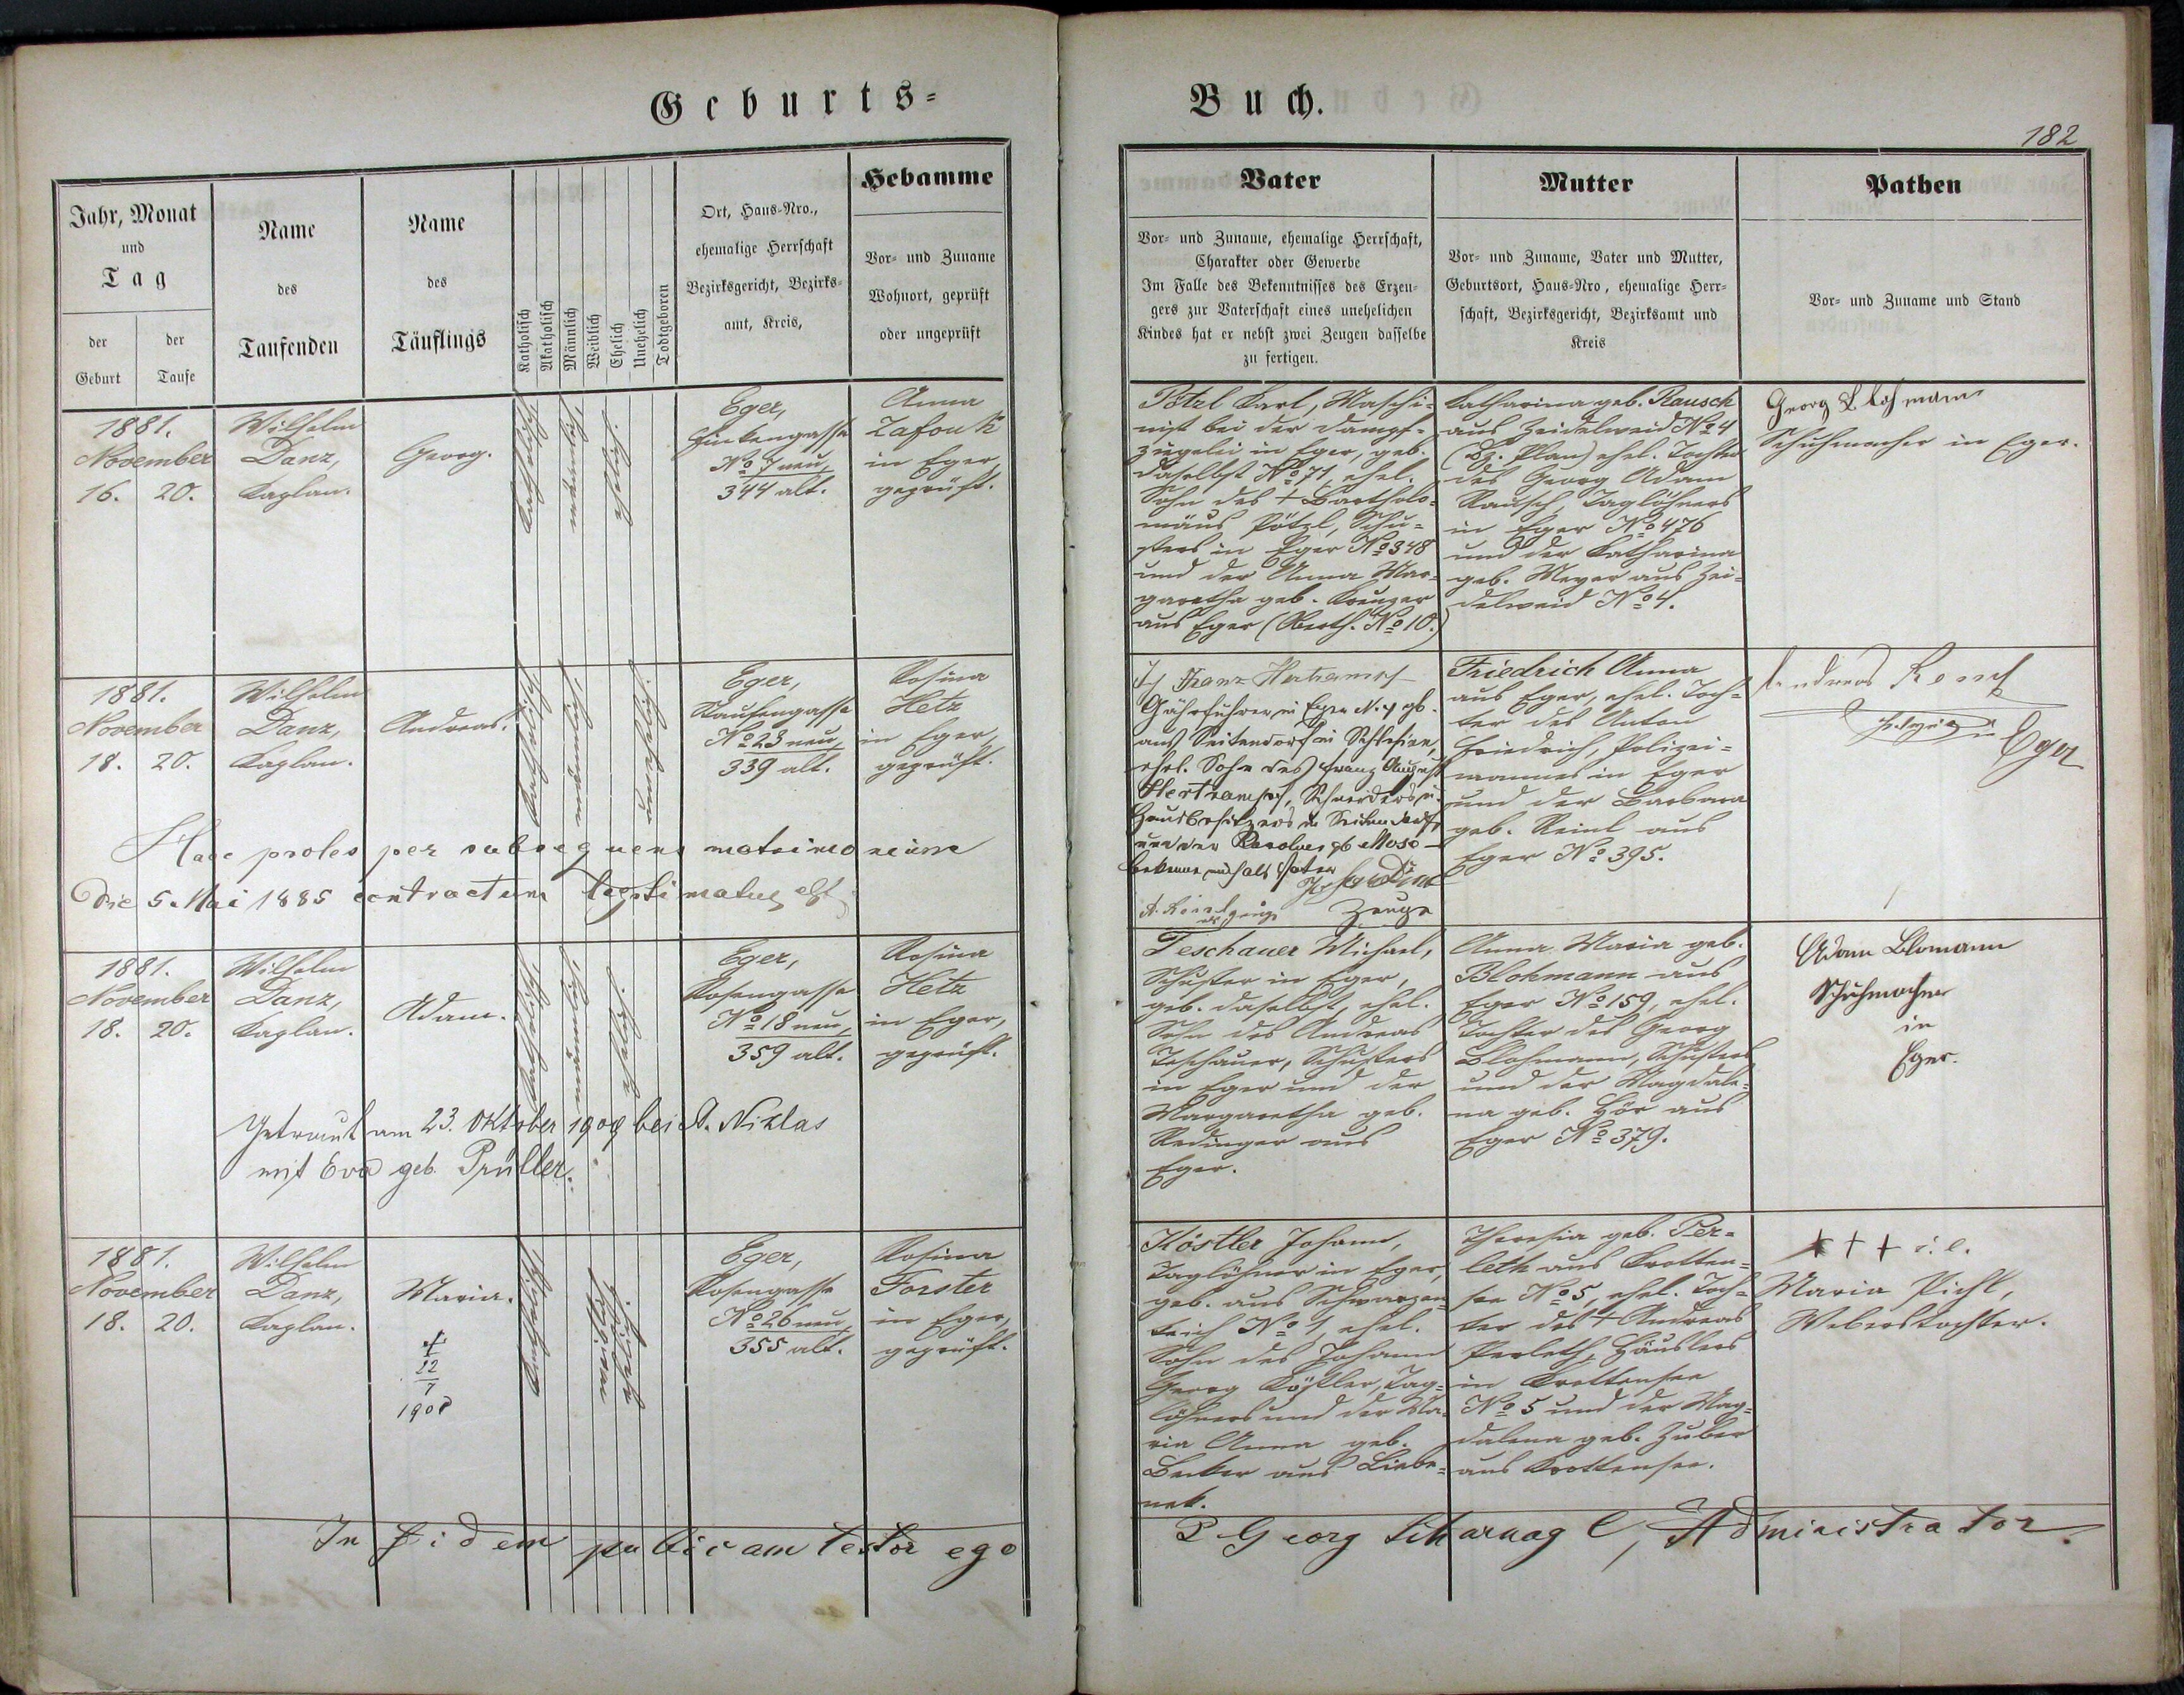 Geburts=
Buch.
182
Jahr, Monat
und
Tag
der
Geburt
der
Taufe
Name
des
Taufenden
Name
des
Täuflings
Katholisch
Akatholisch
Männlich
Weiblich
Ehelich
Unehelich
Todtgeboren
Ort, Haus-Nro.,
ehemalige Herrschaft
Bezirksgericht, Bezirks-
amt, Kreis,
Hebamme
Vor- und Zuname
Wohnort, geprüft
oder ungeprüft
Vater
Vor- und Zuname, ehemalige Herrschaft,
Charakter oder Gewerbe
Im Falle des Bekenntnisses des Erzeu-
gers zur Vaterschaft eines unehelichen
Kindes hat er nebst zwei Zeugen dasselbe
zu fertigen.
Mutter
Vor- und Zuname, Vater und Mutter,
Geburtsort, Haus-Nro, ehemalige Herr-
schaft, Bezirksgericht, Bezirksamt und
Kreis
Pathen
Vor- und Zuname und Stand
1881.
November
16. 20.
Wilhelm
Danz,
Kaplan.
Georg.
katholisch.
männlich.
ehelich.
Eger,
No 7 neu,
344 alt.
Anna
Zafouk
in Eger,
geprüft.
Pötzl Karl, Maschi-
nist bei der Dampf-
ziegelei in Eger, geb.
daselbst No 71, ehel.
Sohn des + Bartholo-
mäus Pötzl, Schu-
sters in Eger No 348
und der Anna Mar-
garetha geb. Kreuzer
aus Eger (Oberth. No 10.)
Katharina geb. Rausch
aus Zeidelweid No 4
(Bz. Plan) ehel. Tochter
des Georg Adam
Rausch, Taglöhners
in Eger No 476
und der Katharina
geb. Meyer aus Zei-
delweid No 4.
Georg Blohmann
Schuhmacher in Eger.
1881.
November
18. 20.
Wilhelm
Danz,
Kaplan.
Andreas.
katholisch.
männlich.
unehelich.
Eger,
No 23 neu,
339 alt.
Rosina
Hetz
in Eger,
geprüft.
Ich Franz Hertrampf
in Eger N. 4 gb.
aus Seitendorf in Schlesien,
ehel. Sohn des Franz August
Hertrampf, Schneiders u.
Hausbesitzers in Seitendorf,
und der
bekenne mich als Vater
Zeuge
Friedrich Anna
aus Eger, ehel. Toch-
ter des Anton
Friedrich, Polizei-
mannes in Eger
und der Barbara
geb. Reinl aus
Eger No 395.
Andreas
Eger
Haec proles per subsequens matrimonium
die 5. Mai 1885 contractum legitimatus est
1881.
November
18. 20.
Wilhelm
Danz,
Kaplan.
Adam.
katholisch.
männlich.
ehelich.
Eger,
Rosengasse
No 18 neu,
359 alt.
Rosina
Hetz
in Eger,
geprüft.
Teschauer Michael,
Schuster in Eger,
geb. daselbst, ehel.
Sohn des Andreas
Teschauer, Schusters
in Eger und der
Margaretha geb.
Redinger aus
Eger.
Anna Maria geb.
Blohmann aus
Eger No 159, ehel.
Tochter des Georg
Blohmann, Schusters
und der Magdale-
na geb. Hör aus
Eger No 379.
Adam Blomann
Schuhmacher
in
Eger.
Getraut am 23. Oktober 1909 bei St. Niklas
mit Eva geb. Prüller.
1881.
November
18. 20.
Wilhelm
Danz,
Kaplan.
Maria.
+
12
7
1908
katholisch.
weiblich.
ehelich.
Eger,
Rosengasse
No 26 neu,
355 alt.
Rosina
Forster
in Eger,
geprüft.
Köstler Johann,
Taglöhner in Eger,
geb. aus Schwarzen-
teich No 1, ehel.
Sohn des Johann
Georg Köstler, Tag-
löhners und der Ma-
ria Anna geb.
Becker aus Liebe-
nek.
Theresia geb. Per-
leth aus Krotten-
see No 5, ehel. Toch-
ter des + Andreas
Perleth, Häuslers
in Krottensee
No 5 und der Mag-
dalena geb. Zuber
aus Krottensee.
+++ i.e.
Maria Pichl,
Weberstochter.
In fidem publicam testor ego
P Georg Scharnagl, Administrator.